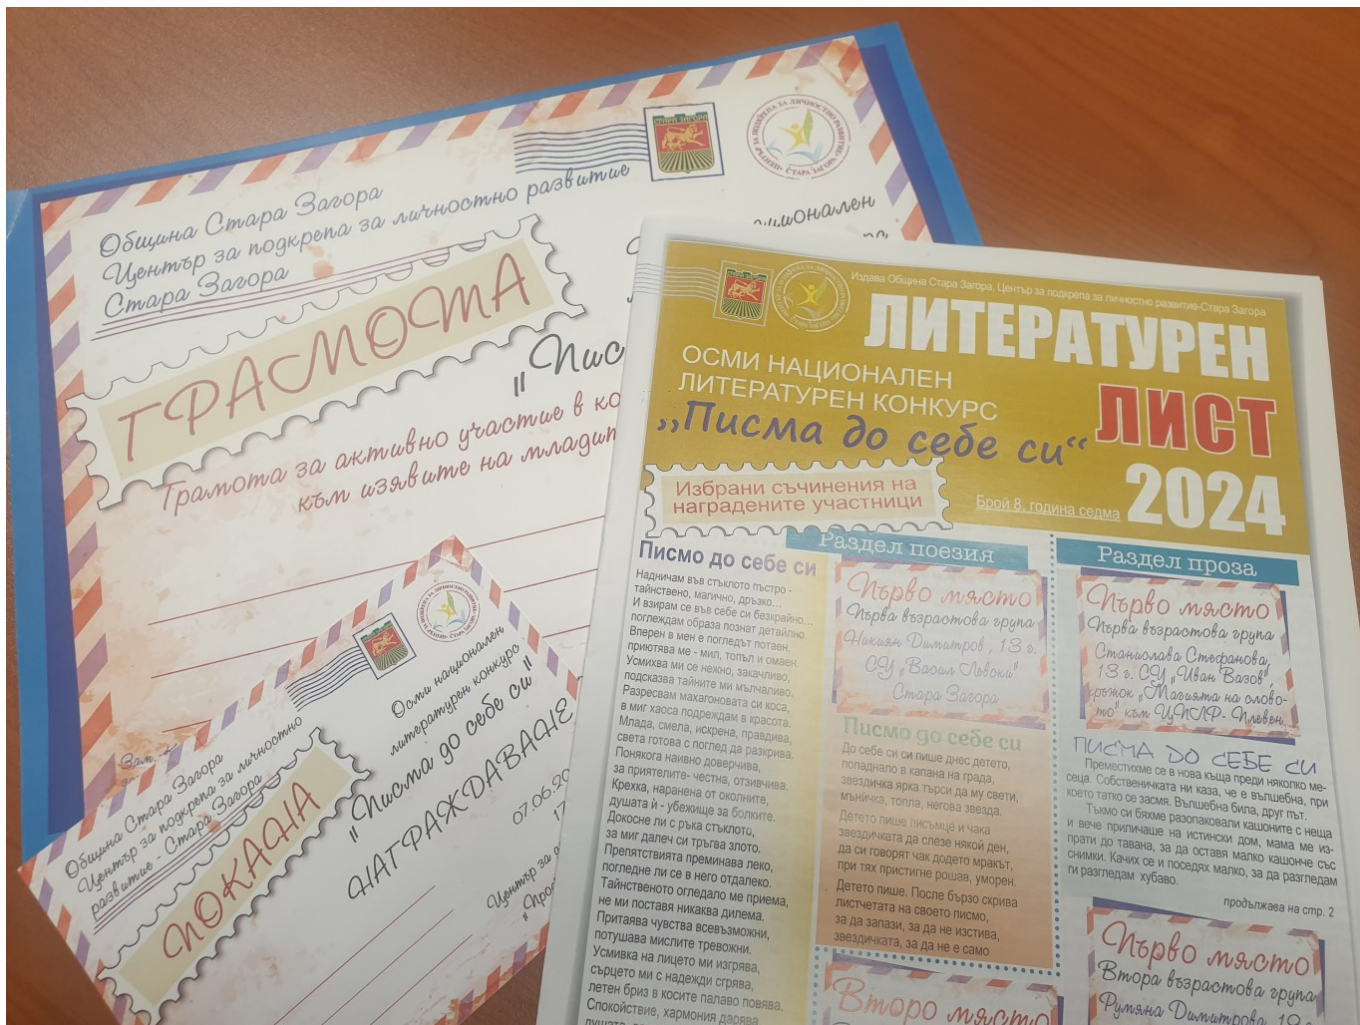 СТАРА ЗАГОРА
Община Стара Загора
Център за подкрепа за личностно развитие
Стара Загора
ГРАМОТА
"Пис
Грамота за активно участие в ко
към изявите на млади
Община Стара Загора
Център за подкрепа за личностно
развитие - Стара Загора
ПОКАНА
Осми национален
литературен конкурс
"Писма до себе си"
НАГРАЖДАВАНЕ
07.06.20
Център за
Издава Община Стара Загора, Център за подкрепа за личностно развитие-Стара Загора
ЛИТЕРАТУРЕН
ЛИСТ
2024
ОСМИ НАЦИОНАЛЕН
ЛИТЕРАТУРЕН КОНКУРС
„Писма до себе си“
Избрани съчинения на
наградените участници
Брой 8, година седма
Писмо до себе си
Надничам във стъклото пъстро -
тайнствено, магично, дръзко...
И взирам се във себе си безкрайно...
поглеждам образа познат детайлно.
Вперен в мен е погледът потаен,
приютява ме - мил, топъл и омаен.
Усмихва ми се нежно, закачливо,
подсказва тайните ми мълчаливо.
Разресвам махагоновата си коса,
в миг хаоса подреждам в красота.
Млада, смела, искрена, правдива,
света готова с поглед да разкрива.
Понякога наивно доверчива,
за приятелите- честна, отзивчива.
Крехка, наранена от околните,
душата ѝ - убежище за болките.
Докосне ли с ръка стъклото,
за миг далеч си тръгва злото.
Препятствията преминава леко,
погледне ли се в него отдалеко.
Тайнственото огледало ме приема,
не ми поставя никаква дилема.
Притаява чувства всевъзможни,
потушава мислите тревожни.
Усмивка на лицето ми изгрява,
сърцето ми с надежди сгрява,
летен бриз в косите палаво повява.
Спокойствие, хармония дарява
Раздел поезия
Първо място
Първа възрастова група
Никиян Димитров, 13 г.
СУ "Васил Левски"
Стара Загора
Писмо до себе си
До себе си си пише днес детето,
попаднало в капана на града,
звездичка ярка търси да му свети,
мъничка, топла, негова звезда.
Детето пише писъмце и чака
звездичката да слезе някой ден,
да си говорят чак додето мракът,
при тях пристигне рошав, уморен.
Детето пише. После бързо скрива
листчетата на своето писмо,
за да запази, за да не изстива,
звездичката, за да не е само
Второ място
Раздел проза
Първо място
Първа възрастова група
Станислава Стефанова,
13 г. СУ "Иван Вазов",
кръжок "Магията на слово-
то" към ЦПЛР- Плевен
ПИСМА ДО СЕБЕ СИ
Преместихме се в нова къща преди няколко ме-
сеца. Собственичката ни каза, че е вълшебна, при
което татко се засмя. Вълшебна била, друг път.
Тъкмо си бяхме разопаковали кашоните с неща
и вече приличаше на истински дом, мама ме из-
прати до тавана, за да оставя малко кашонче със
снимки. Качих се и поседях малко, за да разгледам
ги разгледам хубаво.
продължава на стр. 2
Първо място
Втора възрастова група
Румяна Димитрова,